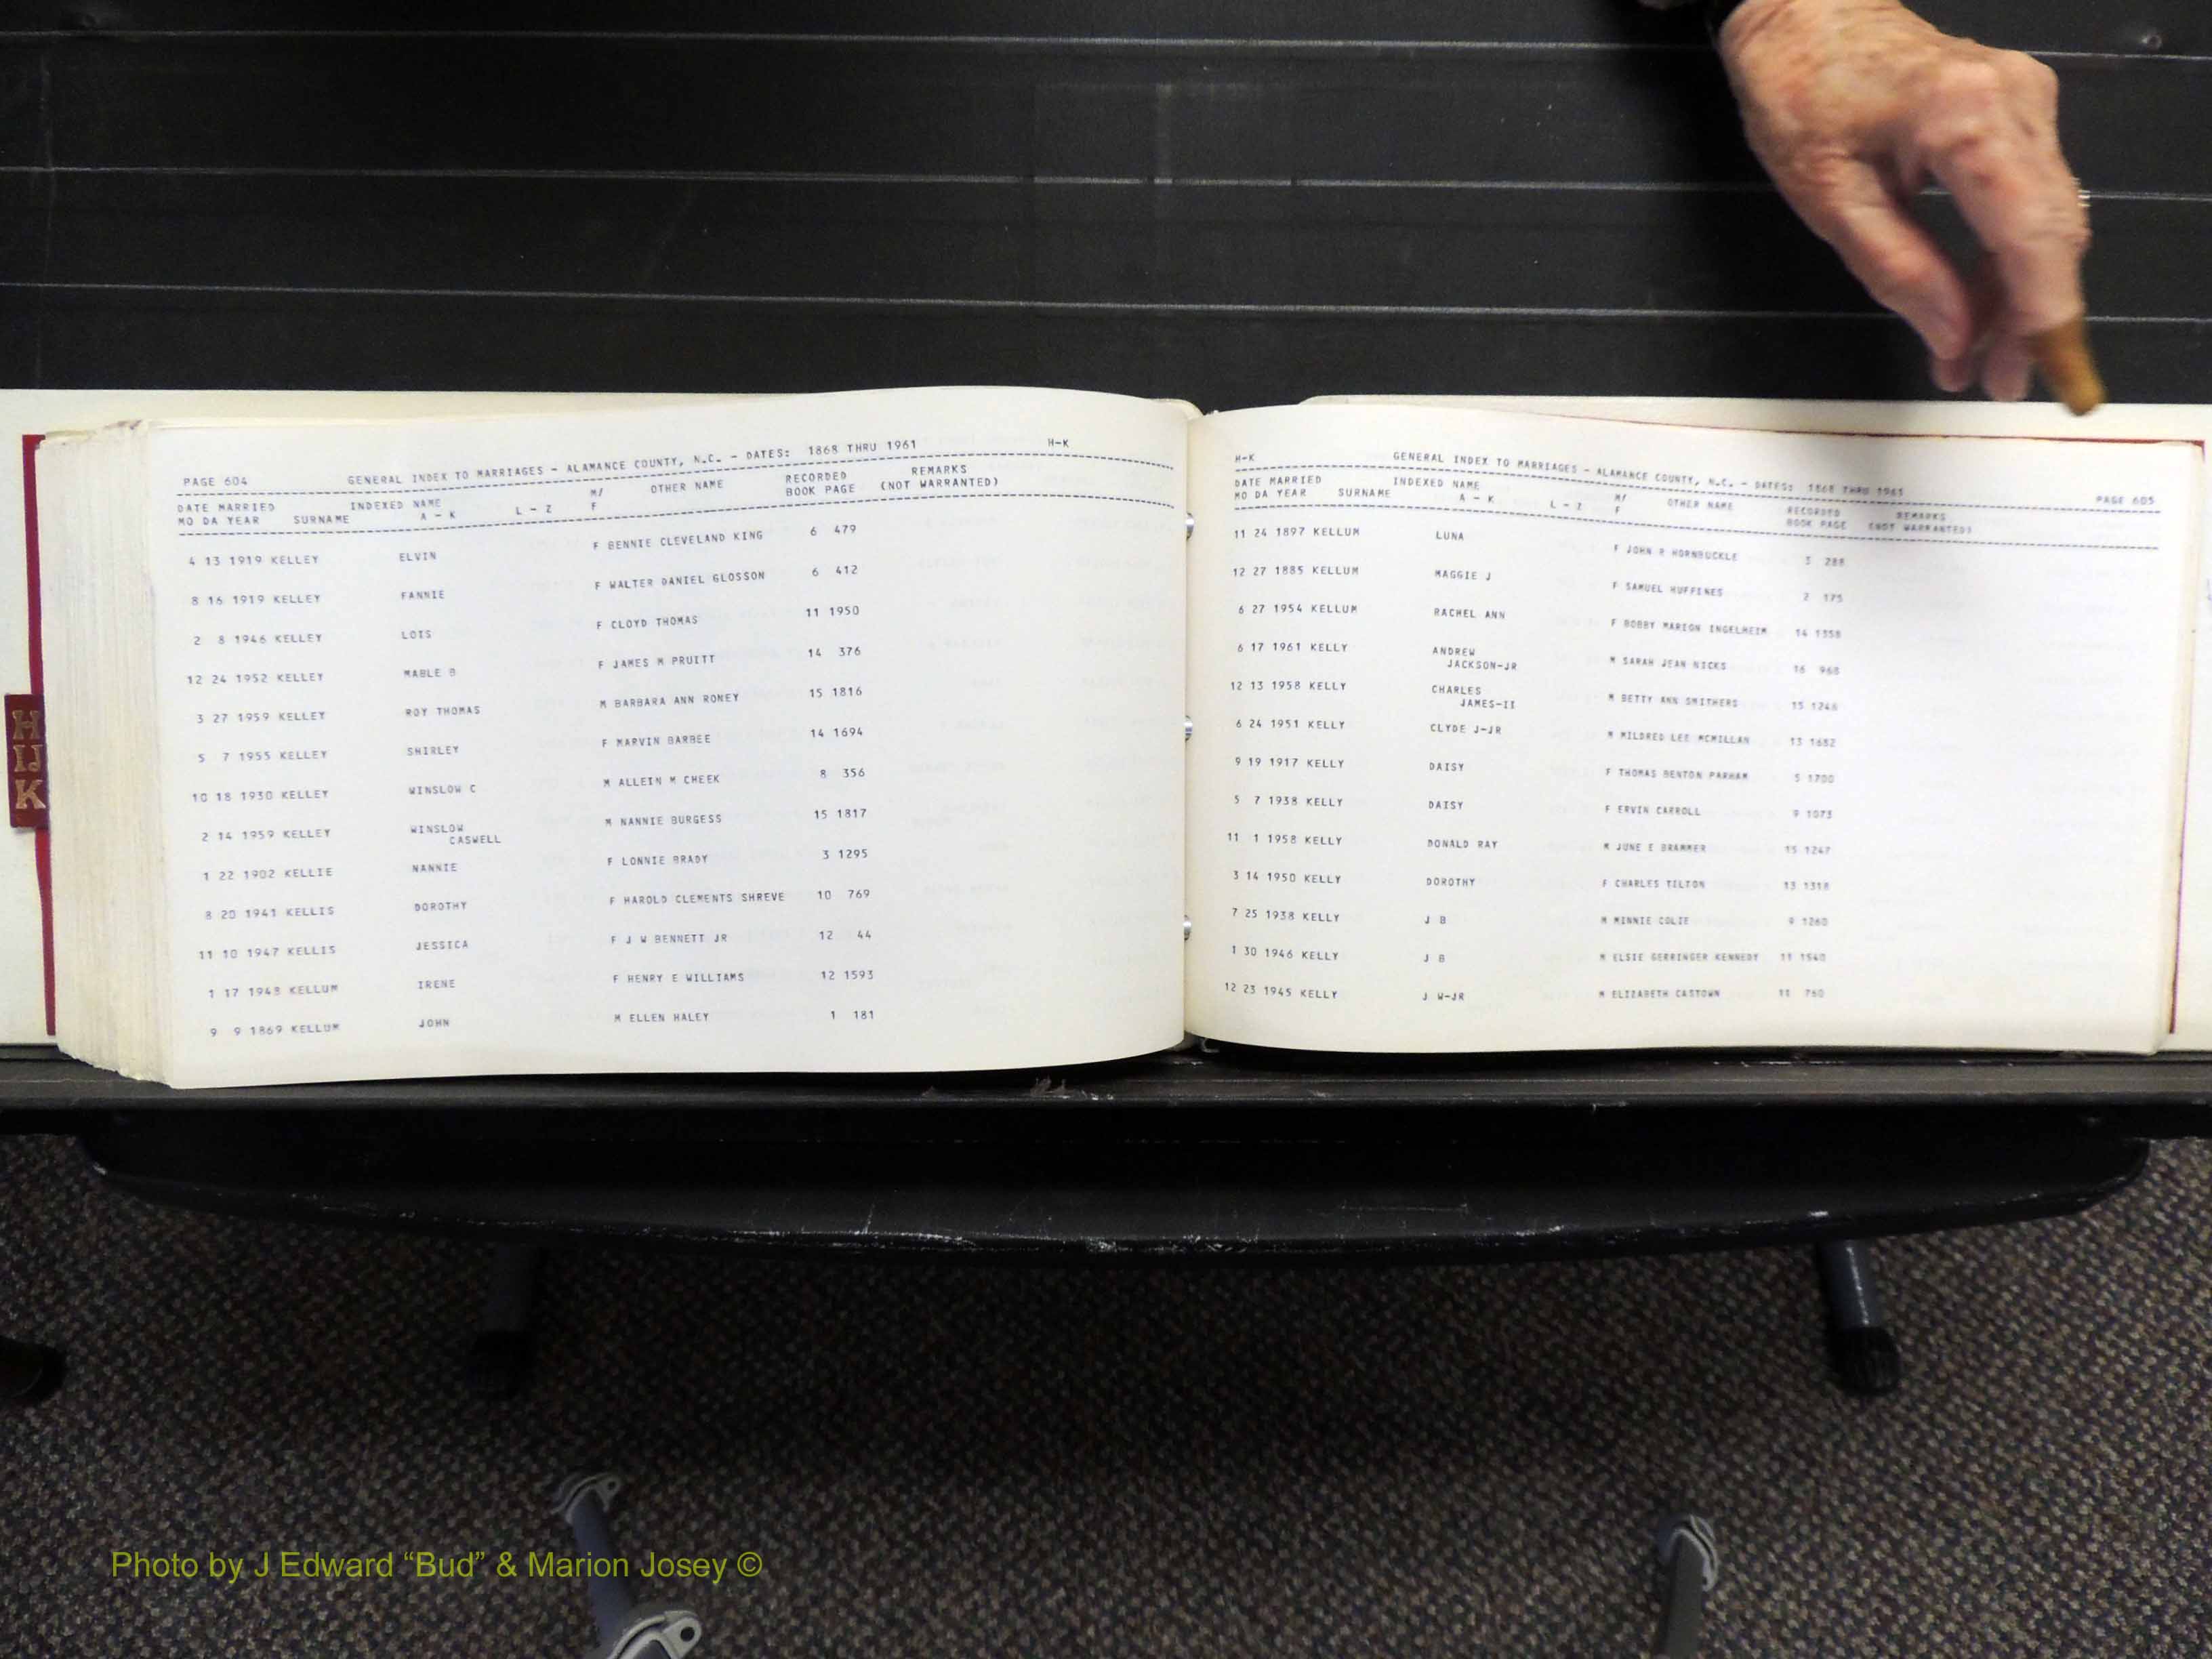 H
IJ
K
PAGE 604 GENERAL INDEX TO MARRIAGES - ALAMANCE COUNTY, N.C. - DATES: 1868 THRU 1961 H-K
DATE MARRIED INDEXED NAME M/ OTHER NAME RECORDED REMARKS
MO DA YEAR SURNAME A - K L - Z F BOOK PAGE (NOT WARRANTED)
4 13 1919 KELLEY ELVIN F BENNIE CLEVELAND KING 6 479
8 16 1919 KELLEY FANNIE F WALTER DANIEL GLOSSON 6 412
2 8 1946 KELLEY LOIS F CLOYD THOMAS 11 1950
12 24 1952 KELLEY MABLE B F JAMES M PRUITT 14 376
3 27 1959 KELLEY ROY THOMAS M BARBARA ANN RONEY 15 1816
5 7 1955 KELLEY SHIRLEY F MARVIN BARBEE 14 1694
10 18 1930 KELLEY WINSLOW C M ALLEIN M CHEEK 8 356
2 14 1959 KELLEY WINSLOW M NANNIE BURGESS 15 1817
CASWELL
1 22 1902 KELLIE NANNIE F LONNIE BRADY 3 1295
8 20 1941 KELLIS DOROTHY F HAROLD CLEMENTS SHREVE 10 769
11 10 1947 KELLIS JESSICA F J W BENNETT JR 12 44
1 17 1948 KELLUM IRENE F HENRY E WILLIAMS 12 1593
9 9 1869 KELLUM JOHN M ELLEN HALEY 1 181
H-K GENERAL INDEX TO MARRIAGES - ALAMANCE COUNTY, N.C. - DATES: 1868 THRU 1961 PAGE 605
DATE MARRIED INDEXED NAME M/ OTHER NAME RECORDED REMARKS
MO DA YEAR SURNAME A - K L - Z F BOOK PAGE (NOT WARRANTED)
11 24 1897 KELLUM LUNA F JOHN R HORNBUCKLE 3 288
12 27 1885 KELLUM MAGGIE J F SAMUEL HUFFINES 2 175
6 27 1954 KELLUM RACHEL ANN F BOBBY MARION INGELHEIM 14 1358
6 17 1961 KELLY ANDREW M SARAH JEAN NICKS 16 968
JACKSON-JR
12 13 1958 KELLY CHARLES M BETTY ANN SMITHERS 15 1246
JAMES-II
6 24 1951 KELLY CLYDE J-JR M MILDRED LEE MCMILLAN 13 1682
9 19 1917 KELLY DAISY F THOMAS BENTON PARHAM 5 1700
5 7 1938 KELLY DAISY F ERVIN CARROLL 9 1073
11 1 1958 KELLY DONALD RAY M JUNE E BRAMMER 15 1247
3 14 1950 KELLY DOROTHY F CHARLES TILTON 13 1318
7 25 1938 KELLY J B M MINNIE COLIE 9 1260
1 30 1946 KELLY J B M ELSIE GERRINGER KENNEDY 11 1540
12 23 1945 KELLY J W-JR M ELIZABETH CASTOWN 11 760
Photo by J Edward “Bud” & Marion Josey ©